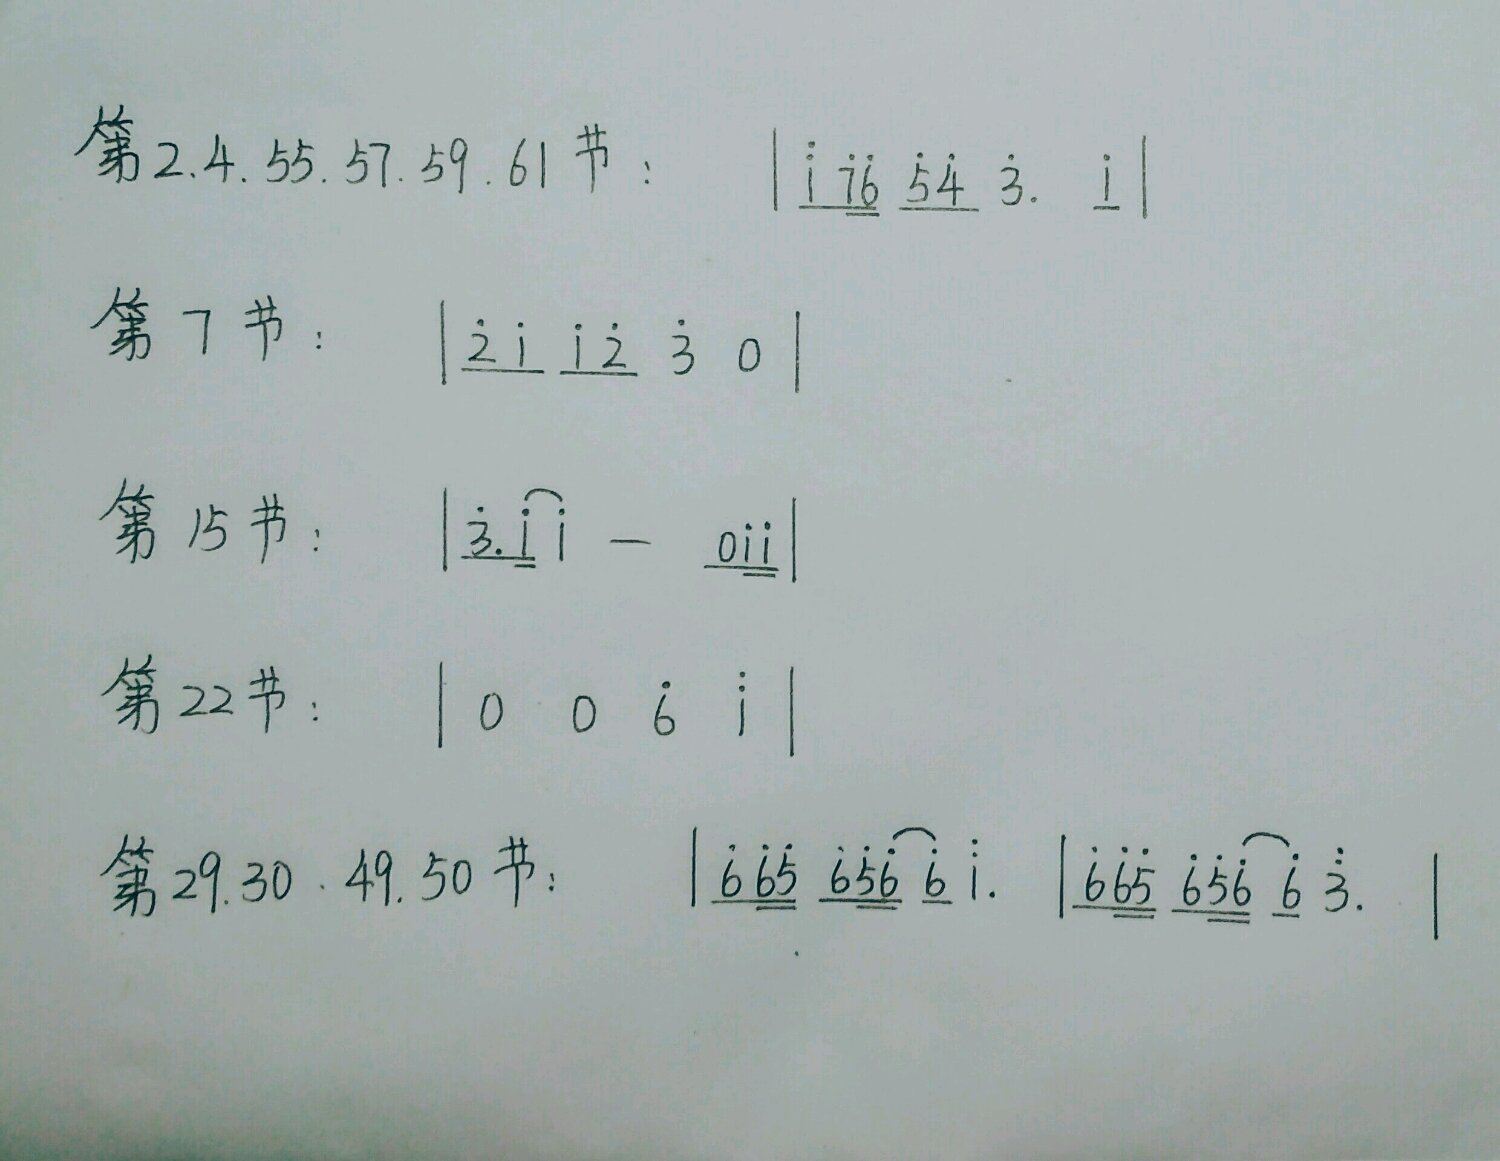 第2.4.55.57.59.61节: | i̇ 7̇6̇ 5̇4̇ 3̇. i |
第7节: | 2̇i i2̇ 3̇ 0 |
第15节: | 3̇.i i — 0ii |
第22节: | 0 0 6̇ i̇ |
第29.30.49.50节: | 6̇6̇5̇ 6̇5̇6̇ 6̇ i̇. | 6̇6̇5̇ 6̇5̇6̇ 6̇ 3̈. |